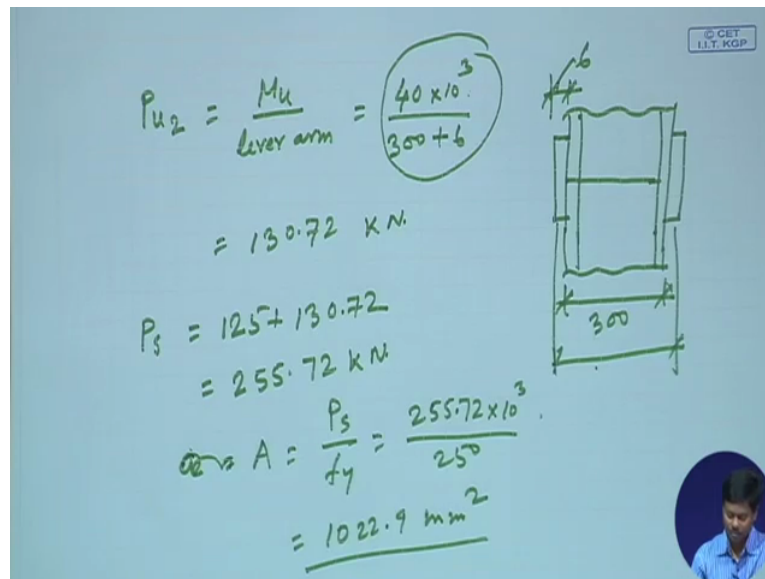 © CET
I.I.T. KGP
Pu2 = Mu / lever arm = 40 × 10^3 / 300 + 6
= 130.72 KN.
6
Ps = 125 + 130.72
= 255.72 KN.
300
A = Ps / fy = 255.72 × 10^3 / 250
= 1022.9 mm^2